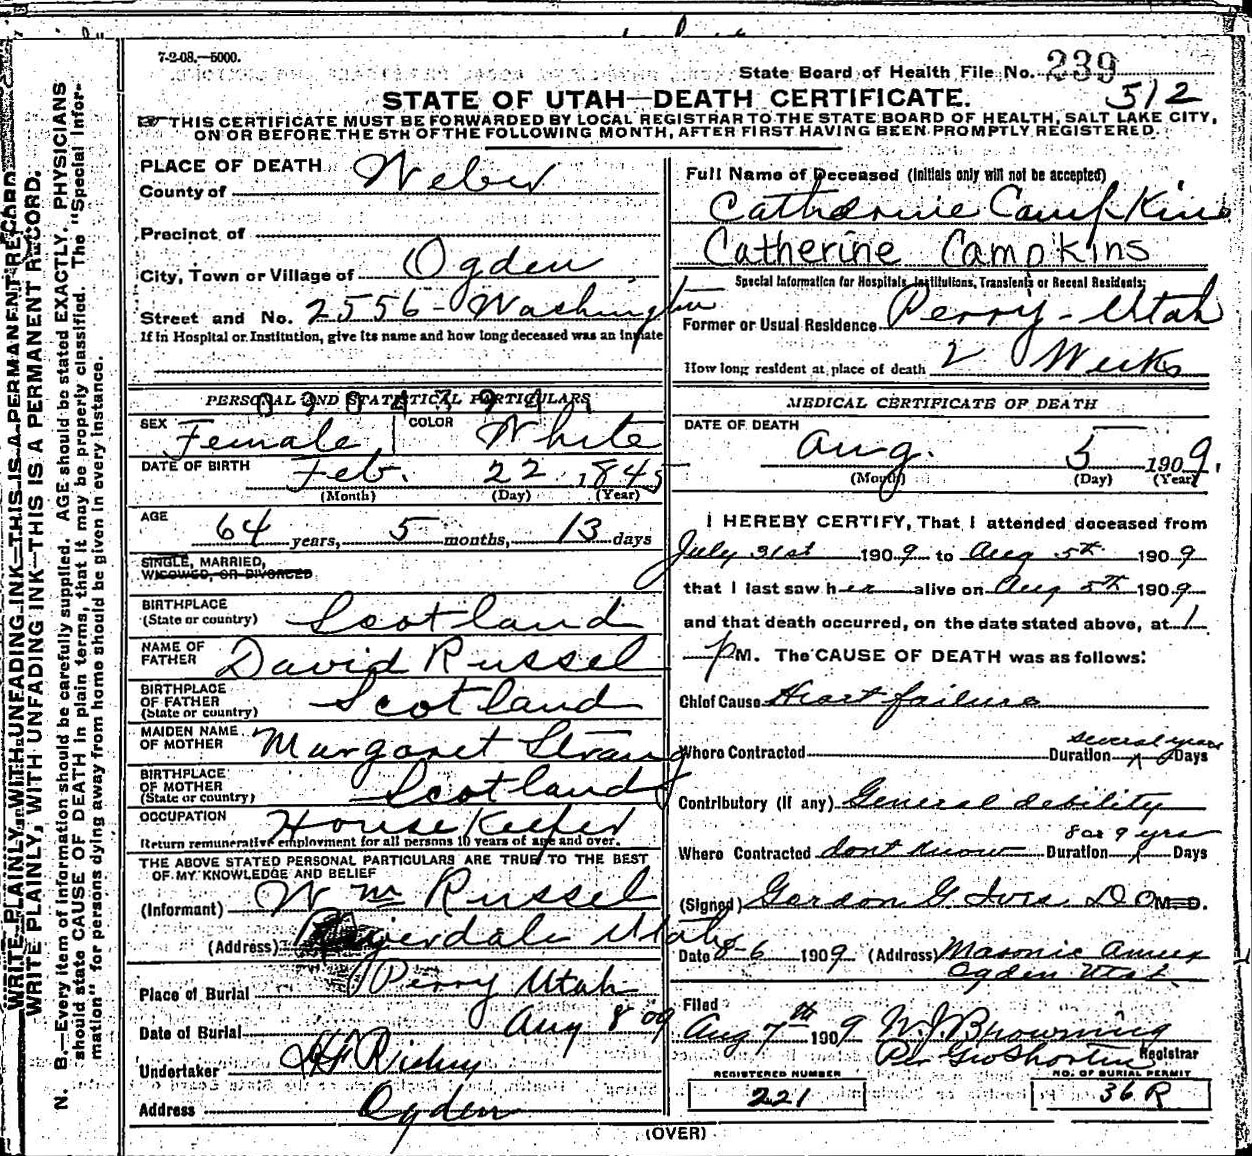 WRITE PLAINLY, WITH UNFADING INK—THIS IS A PERMANENT RECORD.
WRITE PLAINLY, WITH UNFADING INK—THIS IS A PERMANENT RECORD.
N. B.—Every item of information should be carefully supplied. AGE should be stated EXACTLY. PHYSICIANS
should state CAUSE OF DEATH in plain terms, that it may be properly classified. The "Special Infor-
mation" for persons dying away from home should be given in every instance.
7-2-08.—5000.
State Board of Health File No. 239
512
STATE OF UTAH—DEATH CERTIFICATE.
THIS CERTIFICATE MUST BE FORWARDED BY LOCAL REGISTRAR TO THE STATE BOARD OF HEALTH, SALT LAKE CITY,
ON OR BEFORE THE 5TH OF THE FOLLOWING MONTH, AFTER FIRST HAVING BEEN PROMPTLY REGISTERED.
PLACE OF DEATH
County of Weber
Precinct of
City, Town or Village of Ogden
Street and No. 2556 - Washington
If in Hospital or Institution, give its name and how long deceased was an Inmate
PERSONAL AND STATISTICAL PARTICULARS
SEX Female COLOR White
DATE OF BIRTH Feb. 22, 1845
(Month) (Day) (Year)
AGE 64 years, 5 months, 13 days
SINGLE, MARRIED,
WIDOWED, OR DIVORCED
BIRTHPLACE
(State or country) Scotland
NAME OF
FATHER David Russel
BIRTHPLACE
OF FATHER
(State or country) Scotland
MAIDEN NAME
OF MOTHER Margaret Strang
BIRTHPLACE
OF MOTHER
(State or country) Scotland
OCCUPATION House Keeper
Return remunerative employment for all persons 10 years of age and over.
THE ABOVE STATED PERSONAL PARTICULARS ARE TRUE TO THE BEST
OF MY KNOWLEDGE AND BELIEF
(Informant) Wm Russel
(Address) Riverdale Utah
Place of Burial Perry Utah
Date of Burial Aug 8 09
Undertaker Richey
Address Ogden
Full Name of Deceased (Initials only will not be accepted)
Catherine Campkins
Catherine Campkins
Special Information for Hospitals, Institutions, Transients or Recent Residents:
Former or Usual Residence Perry - Utah
How long resident at place of death 2 Weeks
MEDICAL CERTIFICATE OF DEATH
DATE OF DEATH
Aug. 5 1909.
(Month) (Day) (Year)
I HEREBY CERTIFY, That I attended deceased from
July 31st 1909 to Aug 5th 1909
that I last saw her alive on Aug 5th 1909
and that death occurred, on the date stated above, at 1
P M. The CAUSE OF DEATH was as follows:
Chief Cause Heart failure
several years
Where Contracted Duration Days
Contributory (if any) General debility
8 or 9 yrs
Where Contracted dont know Duration Days
(Signed) Gordon G. Ives D O M. D.
Date 8-6 1909 (Address) Masonic Annex
Ogden Utah
Filed
Aug 7th 1909 W. J. Browning
Per Geo Shorten Registrar
REGISTERED NUMBER
221
NO. OF BURIAL PERMIT
36 R
(OVER)